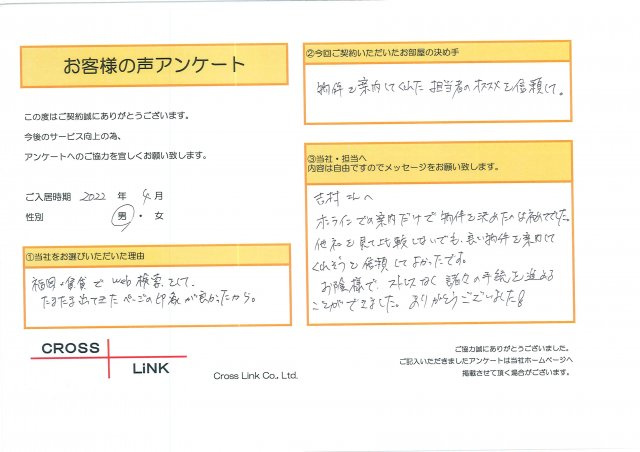 お客様の声アンケート
この度はご契約誠にありがとうございます。
今後のサービス向上の為、
アンケートへのご協力を宜しくお願い致します。
ご入居時期 2022 年 4月
性別 男・女
①当社をお選びいただいた理由
福岡・賃貸でWeb検索をして、
たまたま出てきたページの印象が良かったから。
CROSS
LiNK
Cross Link Co., Ltd.
②今回ご契約いただいたお部屋の決め手
物件を案内してくれた担当者のオススメを信頼して。
③当社・担当へ
内容は自由ですのでメッセージをお願い致します。
吉村さんへ
オンラインでの案内だけで物件を決めたのは初めてでした。
他社を見て比較しないでも、良い物件を案内して
くれそうと信頼してよかったです。
お陰様で、ストレスなく諸々の手続を進める
ことができました。ありがとうございました!
ご協力誠にありがとうございました。
ご記入いただきましたアンケートは当社ホームページへ
掲載させて頂く場合がございます。